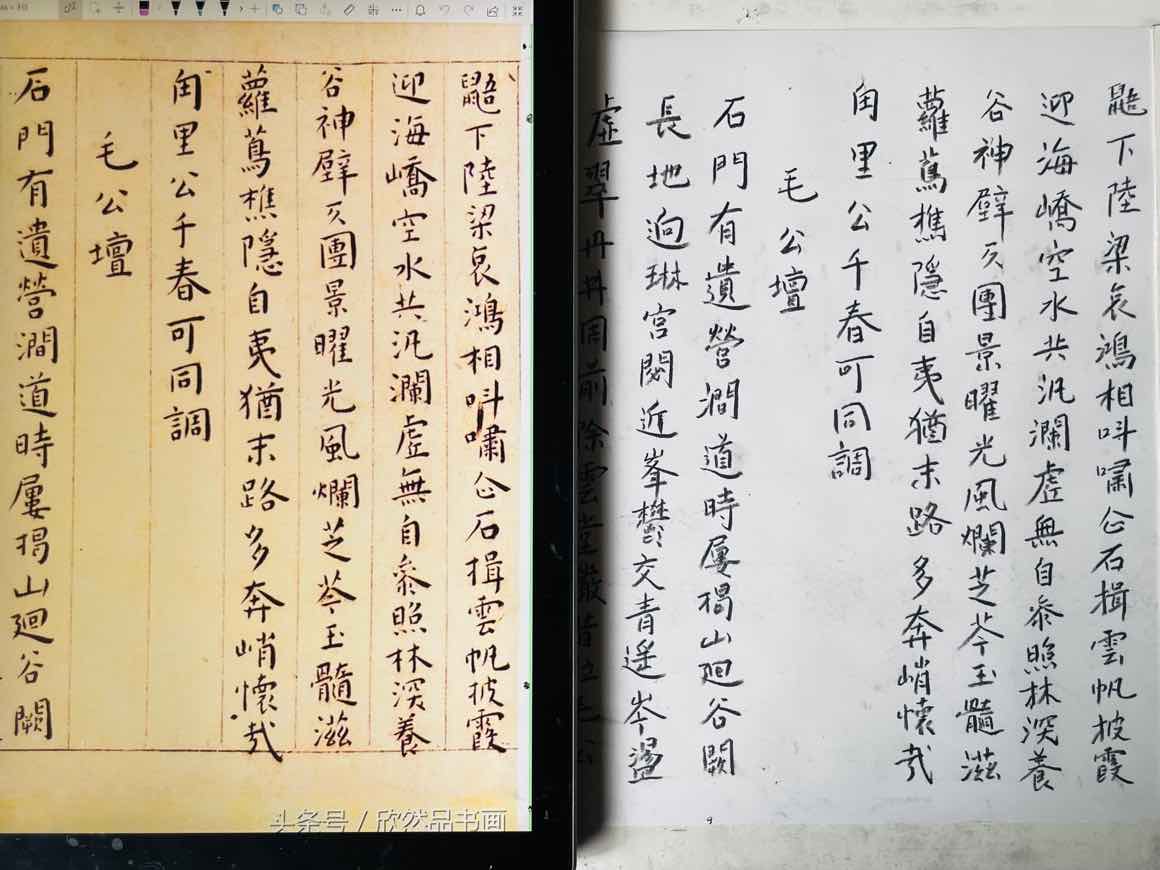 鼯下陸梁哀鴻相呌嘯石揖雲帆披霞
迎海嶠空水共汎瀾虛無自叅照林深養
谷神璧久團景曜光風爛芝芩玉髓滋
蘿蔦樵隱自夷猶末路多奔峭懷哉
甪里公千春可同調
毛公壇
石門有遺營澗道時屢揭山廻谷闕
头条号 / 欣然品书画
鼯下陸梁哀鴻相呌嘯石揖雲帆披霞
迎海嶠空水共汎瀾虛無自叅照林深養
谷神璧久團景曜光風爛芝芩玉髓滋
蘿蔦樵隱自夷猶末路多奔峭懷哉
甪里公千春可同調
毛公壇
石門有遺營澗道時屢揭山廻谷闕
長地逈琳宫閟近峯鬱交青遙岑盪
虛翠丹井周前除雲堂毛公